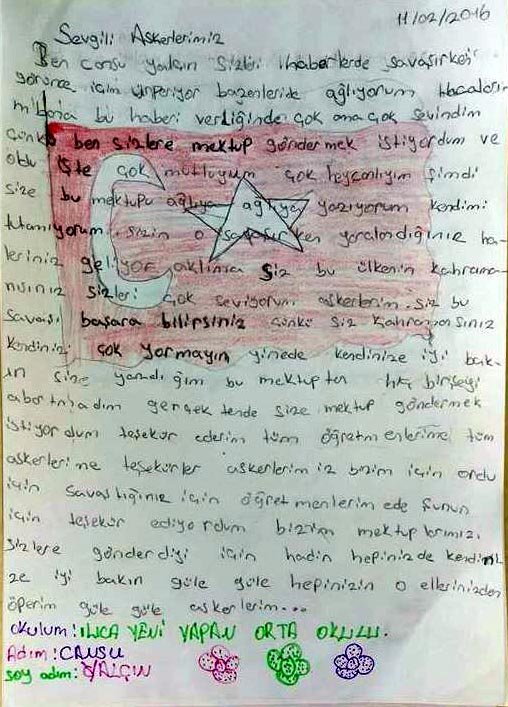 11/02/2016
Sevgili Askerlerimiz
Ben cansu yalçın sizleri haberlerde savaşırken
görünce içim ürperiyor bazenleride ağlıyorum Hocaların
bu haberi verdiğinde çok ama çok sevindim
Çünkü ben sizlere mektup göndermek istiyordum ve
oldu işte çok mutluyum çok heycanlıyım şimdi
size bu mektupu ağlıya ağlıya yazıyorum kendimi
tutamıyorum. sizin o savaşırken yaralandığınız ha-
leriniz geliyor aklıma Siz bu ülkenin kahrama-
nısınız sizleri çok seviyorum askerlerim. siz bu
savaşı başara bilirsiniz çünkü siz kahramansınız
kendinizi çok yormayın yinede kendinize iyi bak-
ın size yazdığım bu mektupta hiç birşeyi
abartmadım gerçektende size mektup göndermek
istiyordum teşekür ederim tüm öğretmenlerime tüm
askerlerime teşekürler askerlerimiz bizim için ordu
için savaştığınız için öğretmenlerimede şunun
için teşekür ediyordum bizim mektuplarımızı
sizlere gönderdiyi için hadin hepinizde kendini
ze iyi bakın güle güle hepinizin o ellerinizden
öperim güle güle askerlerim...
okulum: ILICA YENİ YAPAN ORTA OKULU.
Adım: CANSU
soy adım: YALÇIN